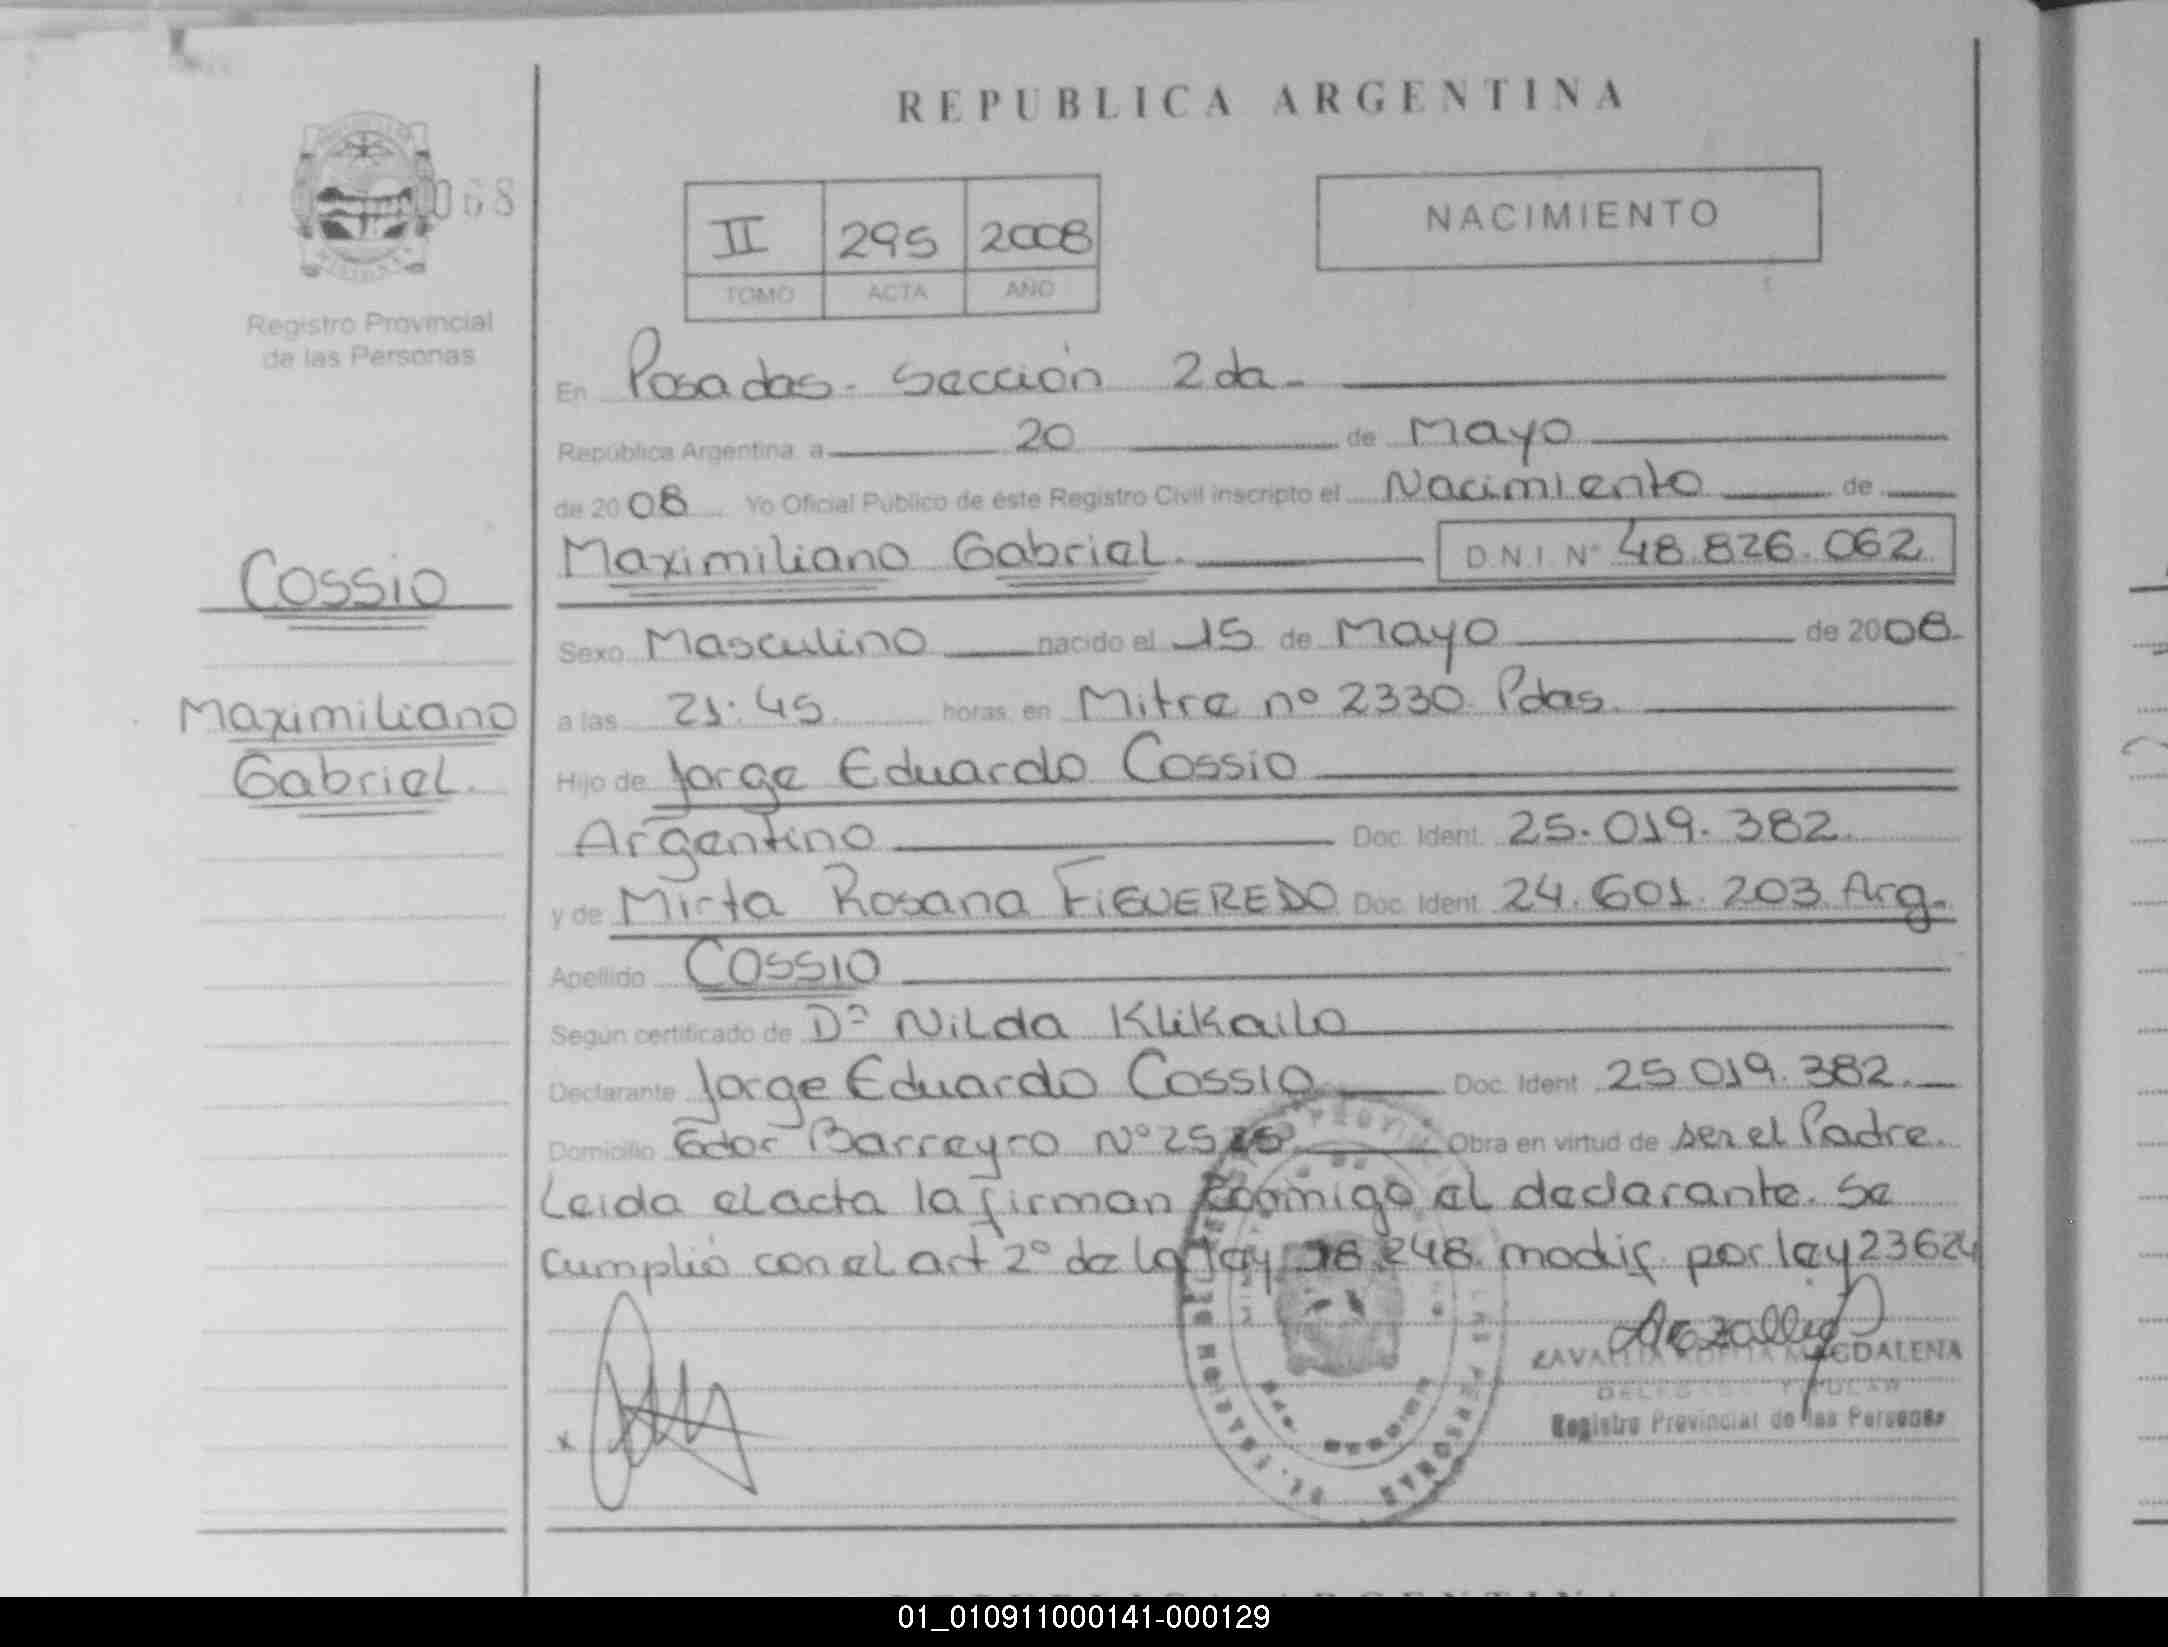 REPUBLICA ARGENTINA
068
II 295 2008
TOMO ACTA AÑO
NACIMIENTO
Registro Provincial
de las Personas
En Posadas - Sección 2da -
República Argentina a 20 de Mayo
de 2008 Yo Oficial Público de éste Registro Civil inscripto el Nacimiento de
Maximiliano Gabriel. D.N.I. Nº 48.826.062
Cossio
Sexo Masculino nacido el 15 de Mayo de 2008.
Maximiliano
Gabriel.
a las 21:45 horas, en Mitre nº 2330 Pdas.
Hijo de Jorge Eduardo Cossio
Argentino Doc. Ident. 25.019.382.
y de Mirta Rosana FIGUEREDO Doc. Ident. 24.601.203 Arg.
Apellido COSSIO
Según certificado de Dª Nilda Klikailo
Declarante Jorge Eduardo Cossio Doc. Ident. 25.019.382.
Domicilio Gdor Barreyro Nº Obra en virtud de ser el Padre.
Leida el acta la firman conmigo el declarante. Se
cumplió con el art 2º de la ley 18.248. modif. por ley 23624
MAGDALENA
Registro Provincial de las Personas
x
PERSONAS
01_010911000141-000129